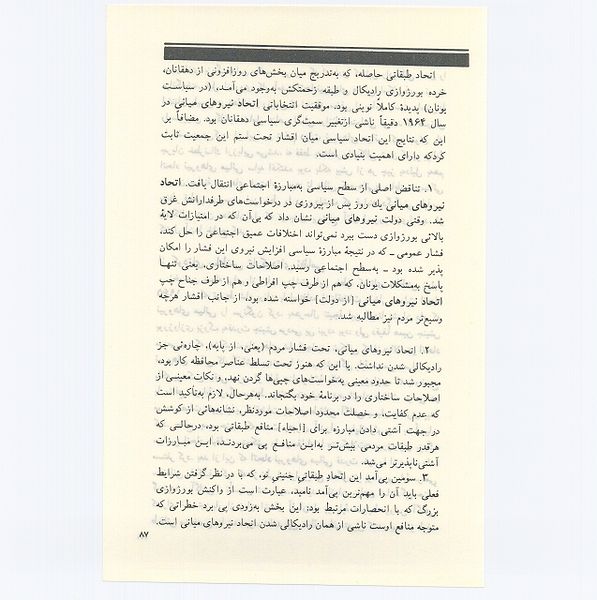 اتحاد طبقاتی حاصله، که به‌تدریج میان بخش‌های روزافزونی از دهقانان،
خرده بورژوازی رادیکال و طبقه زحمتکش به‌وجود می‌آمد، (در سیاست
یونان) پدیدهٔ کاملاً نوینی بود. موفقیت انتخاباتی اتحاد نیروهای میانی در
سال ۱۹۶۴ دقیقاً ناشی ازتغییر سمت‌گری سیاسی دهقانان بود. مضافاً بر
این که نتایج این اتحاد سیاسی میان اقشار تحت ستم این جمعیت ثابت
کردکه دارای اهمیت بنیادی است.
۱. تناقض اصلی از سطح سیاسی به‌مبارزهٔ اجتماعی انتقال یافت. اتحاد
نیروهای میانی یك روز پس از پیروزی در درخواست‌های طرفدارانش غرق
شد. وقتی دولت نیروهای میانی نشان داد که بی‌آن که در امتیازات لایهٔ
بالائی بورژوازی دست ببرد نمی‌تواند اختلافات عمیق اجتماعی را حل کند،
فشار عمومی ـ که در نتیجهٔ مبارزهٔ سیاسی افزایش نیروی این فشار را امکان
پذیر شده بود ـ به‌سطح اجتماعی رسید. اصلاحات ساختاری، یعنی تنها
پاسخ به‌مشکلات یونان، که هم از طرف چپ افراطی و هم از طرف جناح چپ
اتحاد نیروهای میانی [از دولت] خواسته شده بود، از جانب اقشار هرچه
وسیع‌تر مردم نیز مطالبه شد.
۲. اتحاد نیروهای میانی، تحت فشار مردم (یعنی، از پایه)، چاره‌ئی جز
رادیکالی شدن نداشت. با این که هنوز تحت تسلط عناصر محافظه کار بود،
مجبور شد تا حدود معینی به‌خواست‌های چپی‌ها گردن نهد، و نکات معینی از
اصلاحات ساختاری را در برنامهٔ خود بگنجاند. به‌هرحال، لازم به‌تأکید است
که عدم کفایت، و خصلت محدود اصلاحات موردنظر، نشانه‌هائی از کوشش
در جهت آشتی دادن مبارزه برای [احیاء] منافع طبقاتی بود، درحالی که
هرقدر طبقات مردمی بیش‌تر به‌این منافع پی می‌بردند، این مبارزات
آشتی‌ناپذیرتر می‌شد.
۳. سومین پی‌آمد این اتحاد طبقاتی جنینی نو، که با در نظر گرفتن شرایط
فعلی باید آن را مهم‌ترین پی‌آمد نامید، عبارت است از واکنش بورژوازی
بزرگ که با انحصارات مرتبط بود: این بخش به‌زودی پی برد خطراتی که
متوجه منافع اوست ناشی از همان رادیکالی شدن اتحاد نیروهای میانی است.
۸۷